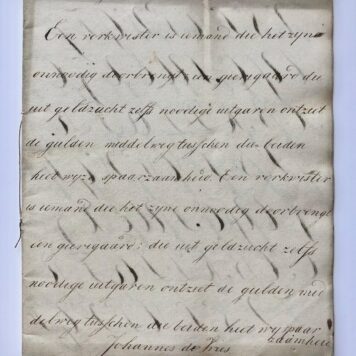 Een verkwister is iemand die het zyne
onnoodig doorbrengt een gierigaard die
uit geldzucht zelfs noodige uitgaven ontziet
de gulden middelweg tusschen die beiden
heet wyze spaarzaamheid. Een verkwister
is iemand die het zyne onnoodig doorbrengt
een gierigaard: die uit geldzucht zelfs
noodige uitgaven ontziet de gulden mid
delweg tusschen die beiden heet wy spaar
zaamheid
Johannes de Vries